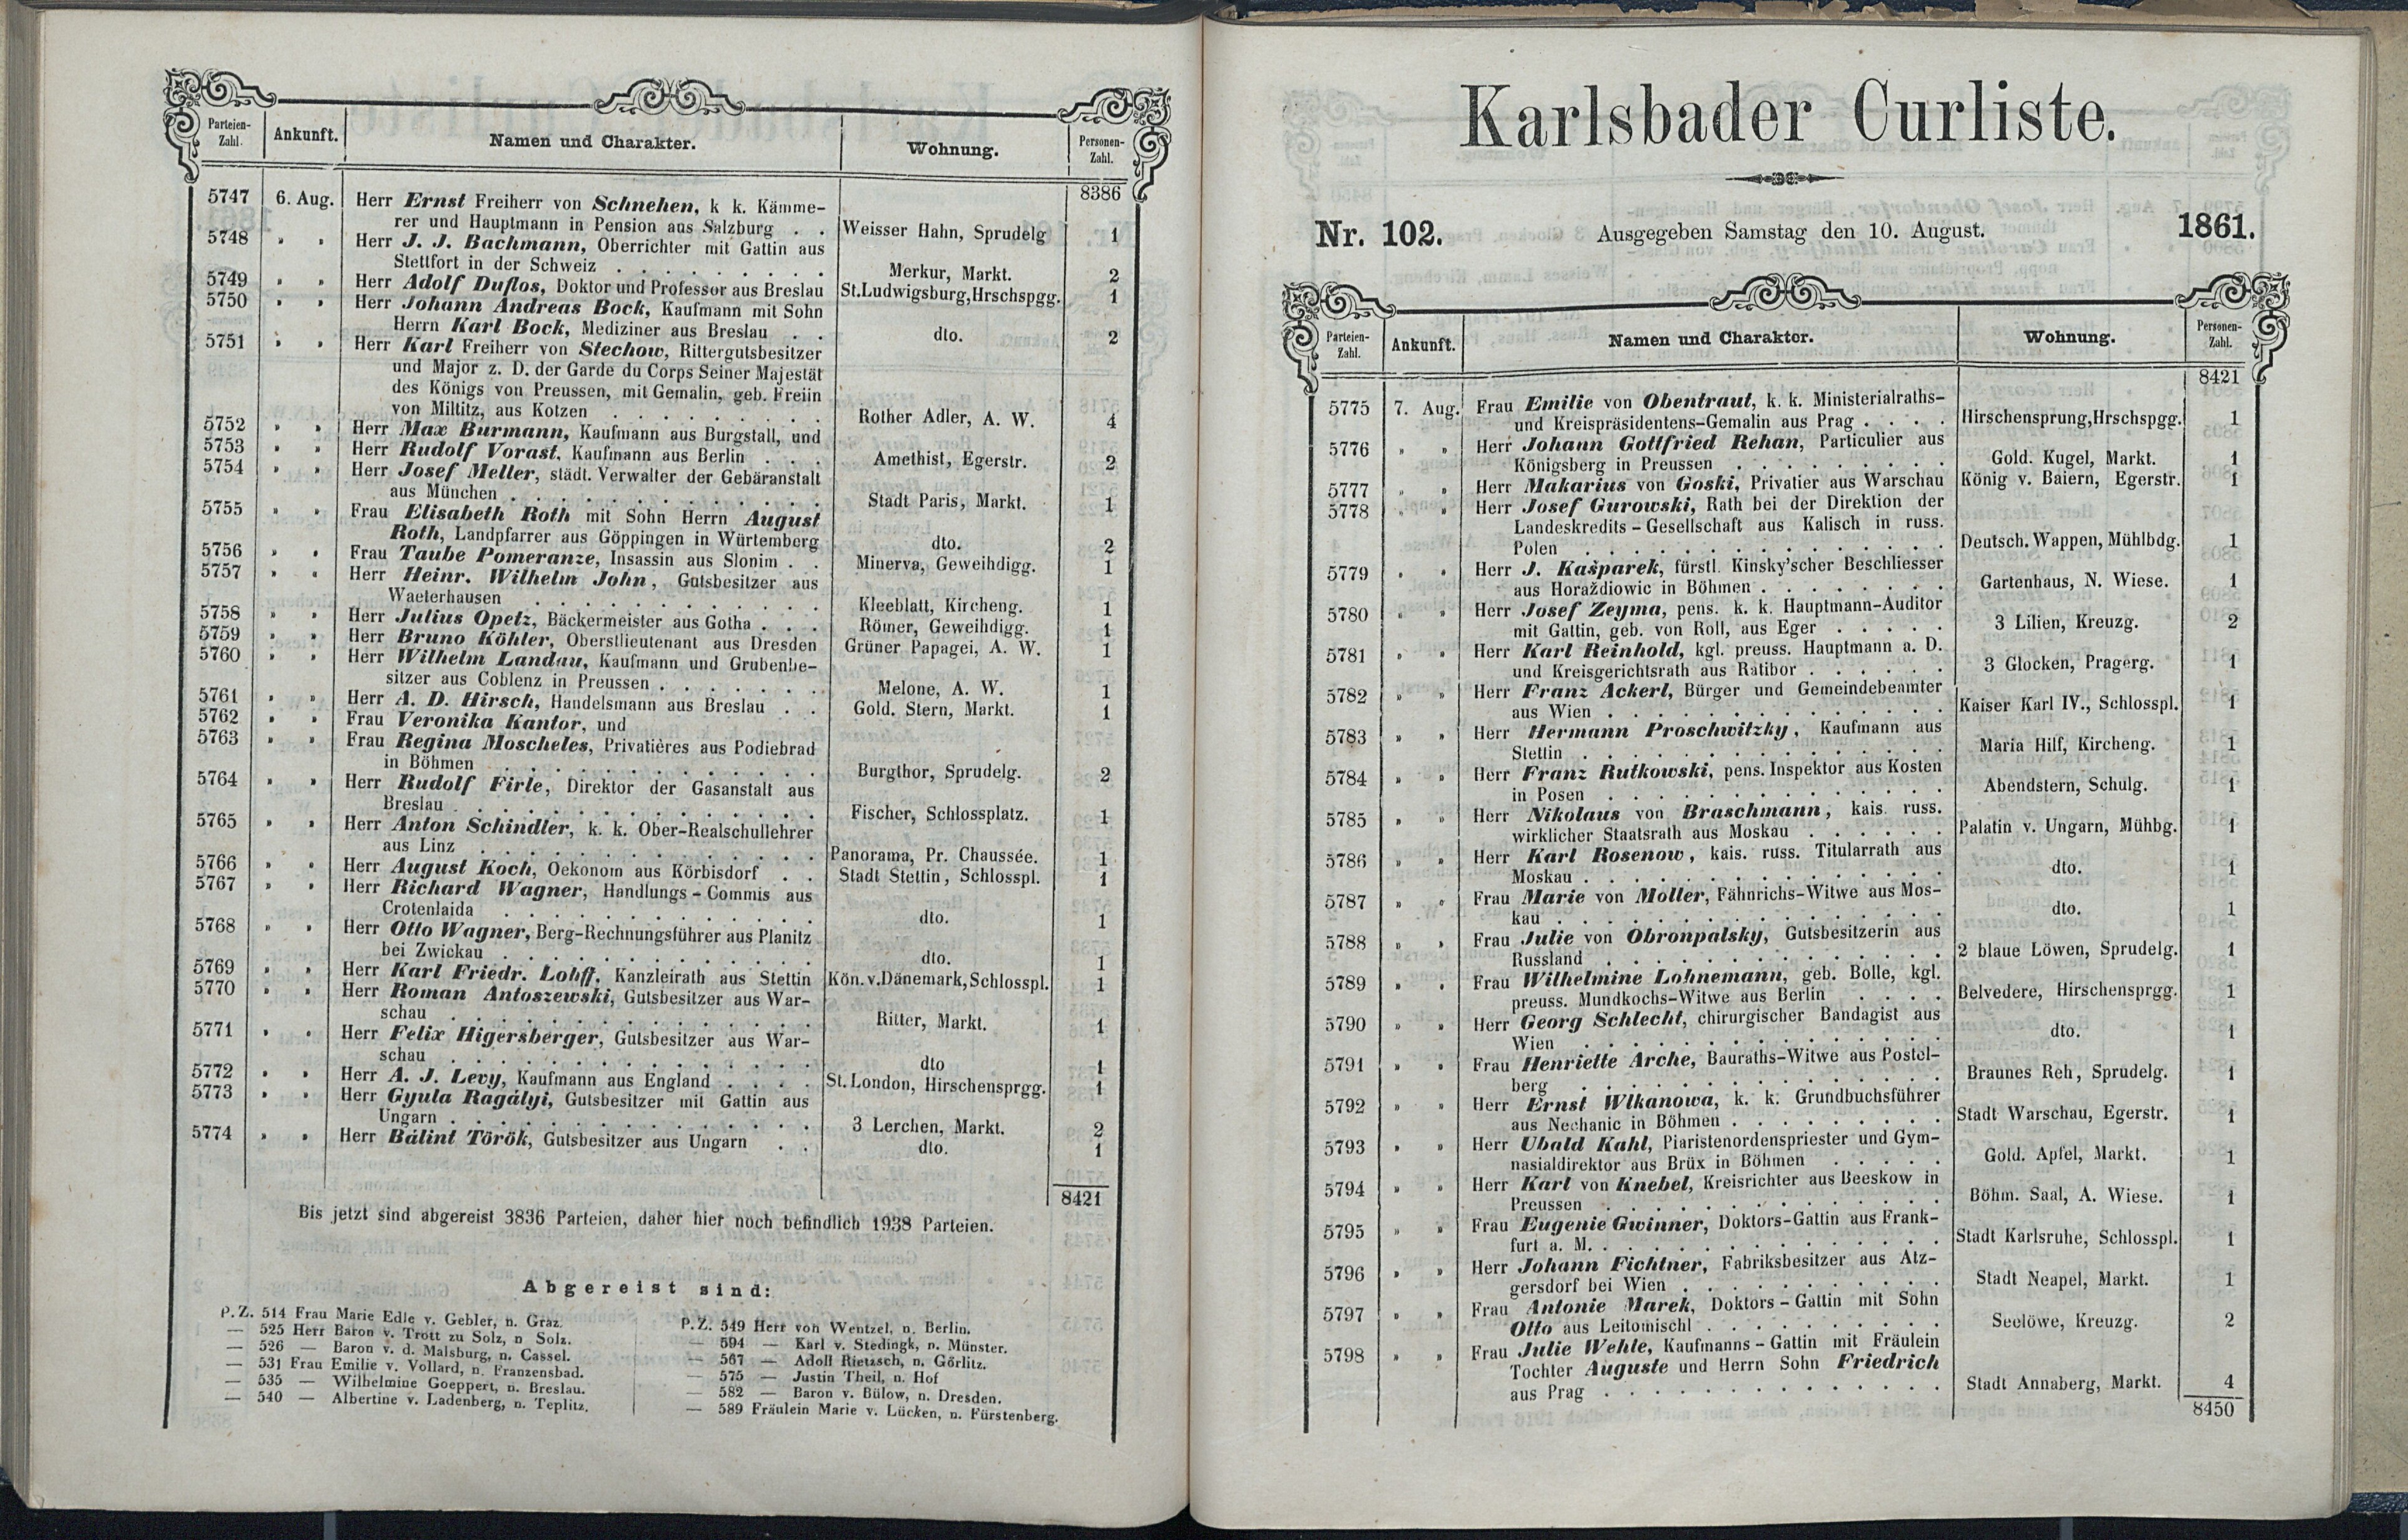 Parteien-Zahl. Ankunft. Namen und Charakter. Wohnung. Personen-Zahl.
8386
5747 6. Aug. Herr Ernst Freiherr von Schnehen, k k. Kämme-
rer und Hauptmann in Pension aus Salzburg . . Weisser Hahn, Sprudelg 1
5748 „ „ Herr J. J. Bachmann, Oberrichter mit Gattin aus
Stettfort in der Schweiz . . . . . . . . . Merkur, Markt. 2
5749 „ „ Herr Adolf Duflos, Doktor und Professor aus Breslau St.Ludwigsburg,Hrschspgg. 1
5750 „ „ Herr Johann Andreas Bock, Kaufmann mit Sohn
Herrn Karl Bock, Mediziner aus Breslau . . dto. 2
5751 „ „ Herr Karl Freiherr von Stechow, Rittergutsbesitzer
und Major z. D. der Garde du Corps Seiner Majestät
des Königs von Preussen, mit Gemalin, geb. Freiin
von Miltitz, aus Kotzen . . . . . . . . . Rother Adler, A. W. 4
5752 „ „ Herr Max Burmann, Kaufmann aus Burgstall, und
5753 „ „ Herr Rudolf Vorast, Kaufmann aus Berlin . . . Amethist, Egerstr. 2
5754 „ „ Herr Josef Meller, städt. Verwalter der Gebäranstalt
aus München . . . . . . . . . . . . . Stadt Paris, Markt. 1
5755 „ „ Frau Elisabeth Roth mit Sohn Herrn August
Roth, Landpfarrer aus Göppingen in Würtemberg dto. 2
5756 „ „ Frau Taube Pomeranze, Insassin aus Slonim . . Minerva, Geweihdigg. 1
5757 „ „ Herr Heinr. Wilhelm John, Gutsbesitzer aus
Waeterhausen . . . . . . . . . . . . Kleeblatt, Kircheng. 1
5758 „ „ Herr Julius Opetz, Bäckermeister aus Gotha . . . Römer, Geweihdigg. 1
5759 „ „ Herr Bruno Köhler, Oberstlieutenant aus Dresden Grüner Papagei, A. W. 1
5760 „ „ Herr Wilhelm Landau, Kaufmann und Grubenbe-
sitzer aus Coblenz in Preussen . . . . . . . Melone, A. W. 1
5761 „ „ Herr A. D. Hirsch, Handelsmann aus Breslau . . Gold. Stern, Markt. 1
5762 „ „ Frau Veronika Kantor, und
5763 „ „ Frau Regina Moscheles, Privatières aus Podiebrad
in Böhmen . . . . . . . . . . . . . Burgthor, Sprudelg. 2
5764 „ „ Herr Rudolf Firle, Direktor der Gasanstalt aus
Breslau . . . . . . . . . . . . . . Fischer, Schlossplatz. 1
5765 „ „ Herr Anton Schindler, k. k. Ober-Realschullehrer
aus Linz . . . . . . . . . . . . . . Panorama, Pr. Chaussée. 1
5766 „ „ Herr August Koch, Oekonom aus Körbisdorf . . Stadt Stettin, Schlosspl. 1
5767 „ „ Herr Richard Wagner, Handlungs-Commis aus
Crotenlaida . . . . . . . . . . . . . dto. 1
5768 „ „ Herr Otto Wagner, Berg-Rechnungsführer aus Planitz
bei Zwickau . . . . . . . . . . . . . dto. 1
5769 „ „ Herr Karl Friedr. Lohff, Kanzleirath aus Stettin Kön.v.Dänemark,Schlosspl. 1
5770 „ „ Herr Roman Antoszewski, Gutsbesitzer aus War-
schau . . . . . . . . . . . . . . . Ritter, Markt. 1
5771 „ „ Herr Felix Higersberger, Gutsbesitzer aus War-
schau . . . . . . . . . . . . . . . dto 1
5772 „ „ Herr A. J. Levy, Kaufmann aus England . . . . St.London, Hirschensprgg. 1
5773 „ „ Herr Gyula Ragályi, Gutsbesitzer mit Gattin aus
Ungarn . . . . . . . . . . . . . . . 3 Lerchen, Markt. 2
5774 „ „ Herr Bálint Török, Gutsbesitzer aus Ungarn . . dto. 1
8421
Bis jetzt sind abgereist 3836 Parteien, daher hier noch befindlich 1938 Parteien.
Abgereist sind:
P.Z. 514 Frau Marie Edle v. Gebler, n. Graz.
— 525 Herr Baron v. Trott zu Solz, n Solz.
— 526 — Baron v. d. Malsburg, n. Cassel.
— 531 Frau Emilie v. Vollard, n. Franzensbad.
— 535 — Wilhelmine Goeppert, n. Breslau.
— 540 — Albertine v. Ladenberg, n. Teplitz.
P.Z. 549 Herr von Wentzel, n. Berlin.
— 594 — Karl v. Stedingk, n. Münster.
— 567 — Adolf Rietzsch, n. Görlitz.
— 575 — Justin Theil, n. Hof
— 582 — Baron v. Bülow, n. Dresden.
— 589 Fräulein Marie v. Lücken, n. Fürstenberg.
Karlsbader Curliste.
Nr. 102. Ausgegeben Samstag den 10. August. 1861.
Parteien-Zahl. Ankunft. Namen und Charakter. Wohnung. Personen-Zahl.
8421
5775 7. Aug. Frau Emilie von Obentraut, k. k. Ministerialraths-
und Kreispräsidentens-Gemalin aus Prag . . . . Hirschensprung,Hrschspgg. 1
5776 „ „ Herr Johann Gottfried Rehan, Particulier aus
Königsberg in Preussen . . . . . . . . . Gold. Kugel, Markt. 1
5777 „ „ Herr Makarius von Goski, Privatier aus Warschau König v. Baiern, Egerstr. 1
5778 „ „ Herr Josef Gurowski, Rath bei der Direktion der
Landeskredits-Gesellschaft aus Kalisch in russ.
Polen . . . . . . . . . . . . . . . Deutsch. Wappen, Mühlbdg. 1
5779 „ „ Herr J. Kašparek, fürstl. Kinsky'scher Beschliesser
aus Horaždiowic in Böhmen . . . . . . . . Gartenhaus, N. Wiese. 1
5780 „ „ Herr Josef Zeyma, pens. k. k. Hauptmann-Auditor
mit Gattin, geb. von Roll, aus Eger . . . . . 3 Lilien, Kreuzg. 2
5781 „ „ Herr Karl Reinhold, kgl. preuss. Hauptmann a. D.
und Kreisgerichtsrath aus Ratibor . . . . . . 3 Glocken, Pragerg. 1
5782 „ „ Herr Franz Ackerl, Bürger und Gemeindebeamter
aus Wien . . . . . . . . . . . . . . Kaiser Karl IV., Schlosspl. 1
5783 „ „ Herr Hermann Proschwitzky, Kaufmann aus
Stettin . . . . . . . . . . . . . . . Maria Hilf, Kircheng. 1
5784 „ „ Herr Franz Rutkowski, pens. Inspektor aus Kosten
in Posen . . . . . . . . . . . . . . Abendstern, Schulg. 1
5785 „ „ Herr Nikolaus von Braschmann, kais. russ.
wirklicher Staatsrath aus Moskau . . . . . . Palatin v. Ungarn, Mühbg. 1
5786 „ „ Herr Karl Rosenow, kais. russ. Titularrath aus
Moskau . . . . . . . . . . . . . . . dto. 1
5787 „ „ Frau Marie von Moller, Fähnrichs-Witwe aus Mos-
kau . . . . . . . . . . . . . . . . dto. 1
5788 „ „ Frau Julie von Obronpalsky, Gutsbesitzerin aus
Russland . . . . . . . . . . . . . . 2 blaue Löwen, Sprudelg. 1
5789 „ „ Frau Wilhelmine Lohnemann, geb. Bolle, kgl.
preuss. Mundkochs-Witwe aus Berlin . . . . Belvedere, Hirschensprgg. 1
5790 „ „ Herr Georg Schlecht, chirurgischer Bandagist aus
Wien . . . . . . . . . . . . . . . dto. 1
5791 „ „ Frau Henriette Arche, Bauraths-Witwe aus Postel-
berg . . . . . . . . . . . . . . . Braunes Reh, Sprudelg. 1
5792 „ „ Herr Ernst Wlkanowa, k. k. Grundbuchsführer
aus Nechanic in Böhmen . . . . . . . . . Stadt Warschau, Egerstr. 1
5793 „ „ Herr Ubald Kahl, Piaristenordenspriester und Gym-
nasialdirektor aus Brüx in Böhmen . . . . . Gold. Apfel, Markt. 1
5794 „ „ Herr Karl von Knebel, Kreisrichter aus Beeskow in
Preussen . . . . . . . . . . . . . . Böhm. Saal, A. Wiese. 1
5795 „ „ Frau Eugenie Gwinner, Doktors-Gattin aus Frank-
furt a. M. . . . . . . . . . . . . . . Stadt Karlsruhe, Schlosspl. 1
5796 „ „ Herr Johann Fichtner, Fabriksbesitzer aus Atz-
gersdorf bei Wien . . . . . . . . . . . Stadt Neapel, Markt. 1
5797 „ „ Frau Antonie Marek, Doktors-Gattin mit Sohn
Otto aus Leitomischl . . . . . . . . . . Seelöwe, Kreuzg. 2
5798 „ „ Frau Julie Wehle, Kaufmanns-Gattin mit Fräulein
Tochter Auguste und Herrn Sohn Friedrich
aus Prag . . . . . . . . . . . . . . Stadt Annaberg, Markt. 4
8450